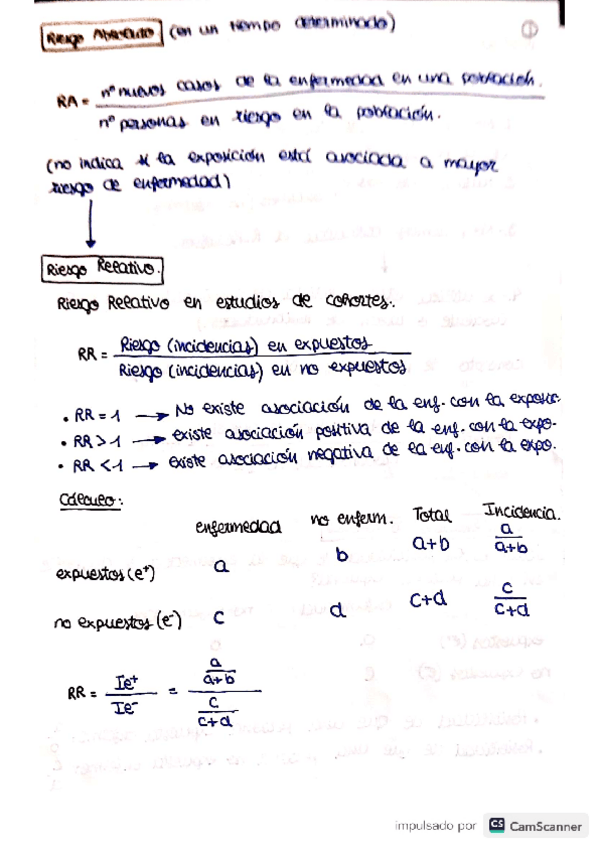 Riesgo Absoluto (en un tiempo determinado) ①
RA = nº nuevos casos de la enfermedad en una población.
nº personas en riesgo en la población.
(no indica si la exposición está asociada a mayor
riesgo de enfermedad)
Riesgo Relativo.
Riesgo Relativo en estudios de cohortes.
RR = Riesgo (incidencias) en expuestos
Riesgo (incidencias) en no expuestos
• RR = 1 → No existe asociación de la enf. con la exposic.
• RR > 1 → existe asociación positiva de la enf. con la expo.
• RR < 1 → existe asociación negativa de la enf. con la expo.
Cálculo:
enfermedad no enferm. Total Incidencia.
expuestos (e⁺) a b a+b a/a+b
no expuestos (e⁻) c d c+d c/c+d
RR = Ie⁺/Ie⁻ = a/a+b / c/c+d
impulsado por CS CamScanner